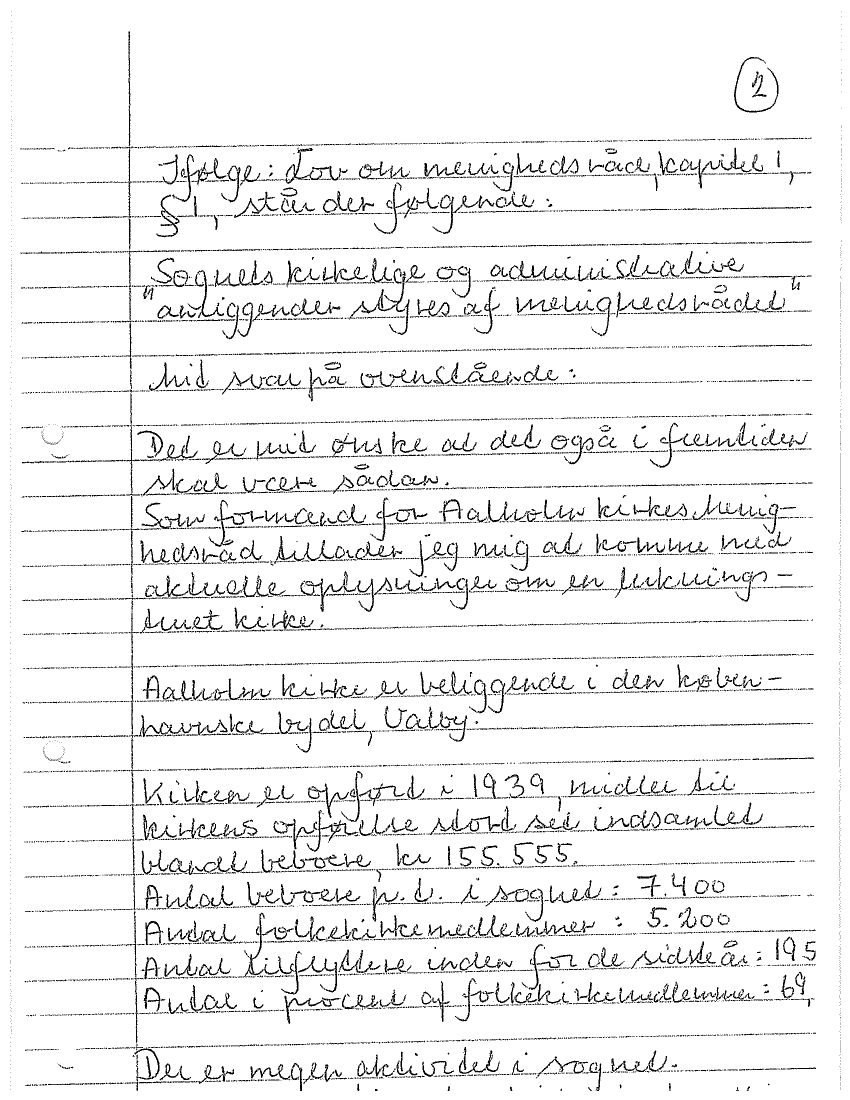 2
Ifølge: Lov om menighedsråd, kapitel 1,
§ 1, står der følgende:
Sognets kirkelige og administrative
"anliggender styres af menighedsrådet"
Mit svar på ovenstående:
Det er mit ønske at det også i fremtiden
skal være sådan.
Som formand for Aalholm kirkes Menig-
hedsråd tillader jeg mig at komme med
aktuelle oplysninger om en luknings-
truet kirke.
Aalholm kirke er beliggende i den køben-
havnske bydel, Valby.
Kirken er opført i 1939, midler til
kirkens opførelse stort set indsamlet
blandt beboere, kr 155.555.
Antal beboere p.t. i sognet: 7.400
Antal folkekirkemedlemmer: 5.200
Antal tilflyttere inden for de sidste år: 195
Antal i procent af folkekirkemedlemmer: 69,
Der er megen aktivitet i sognet.